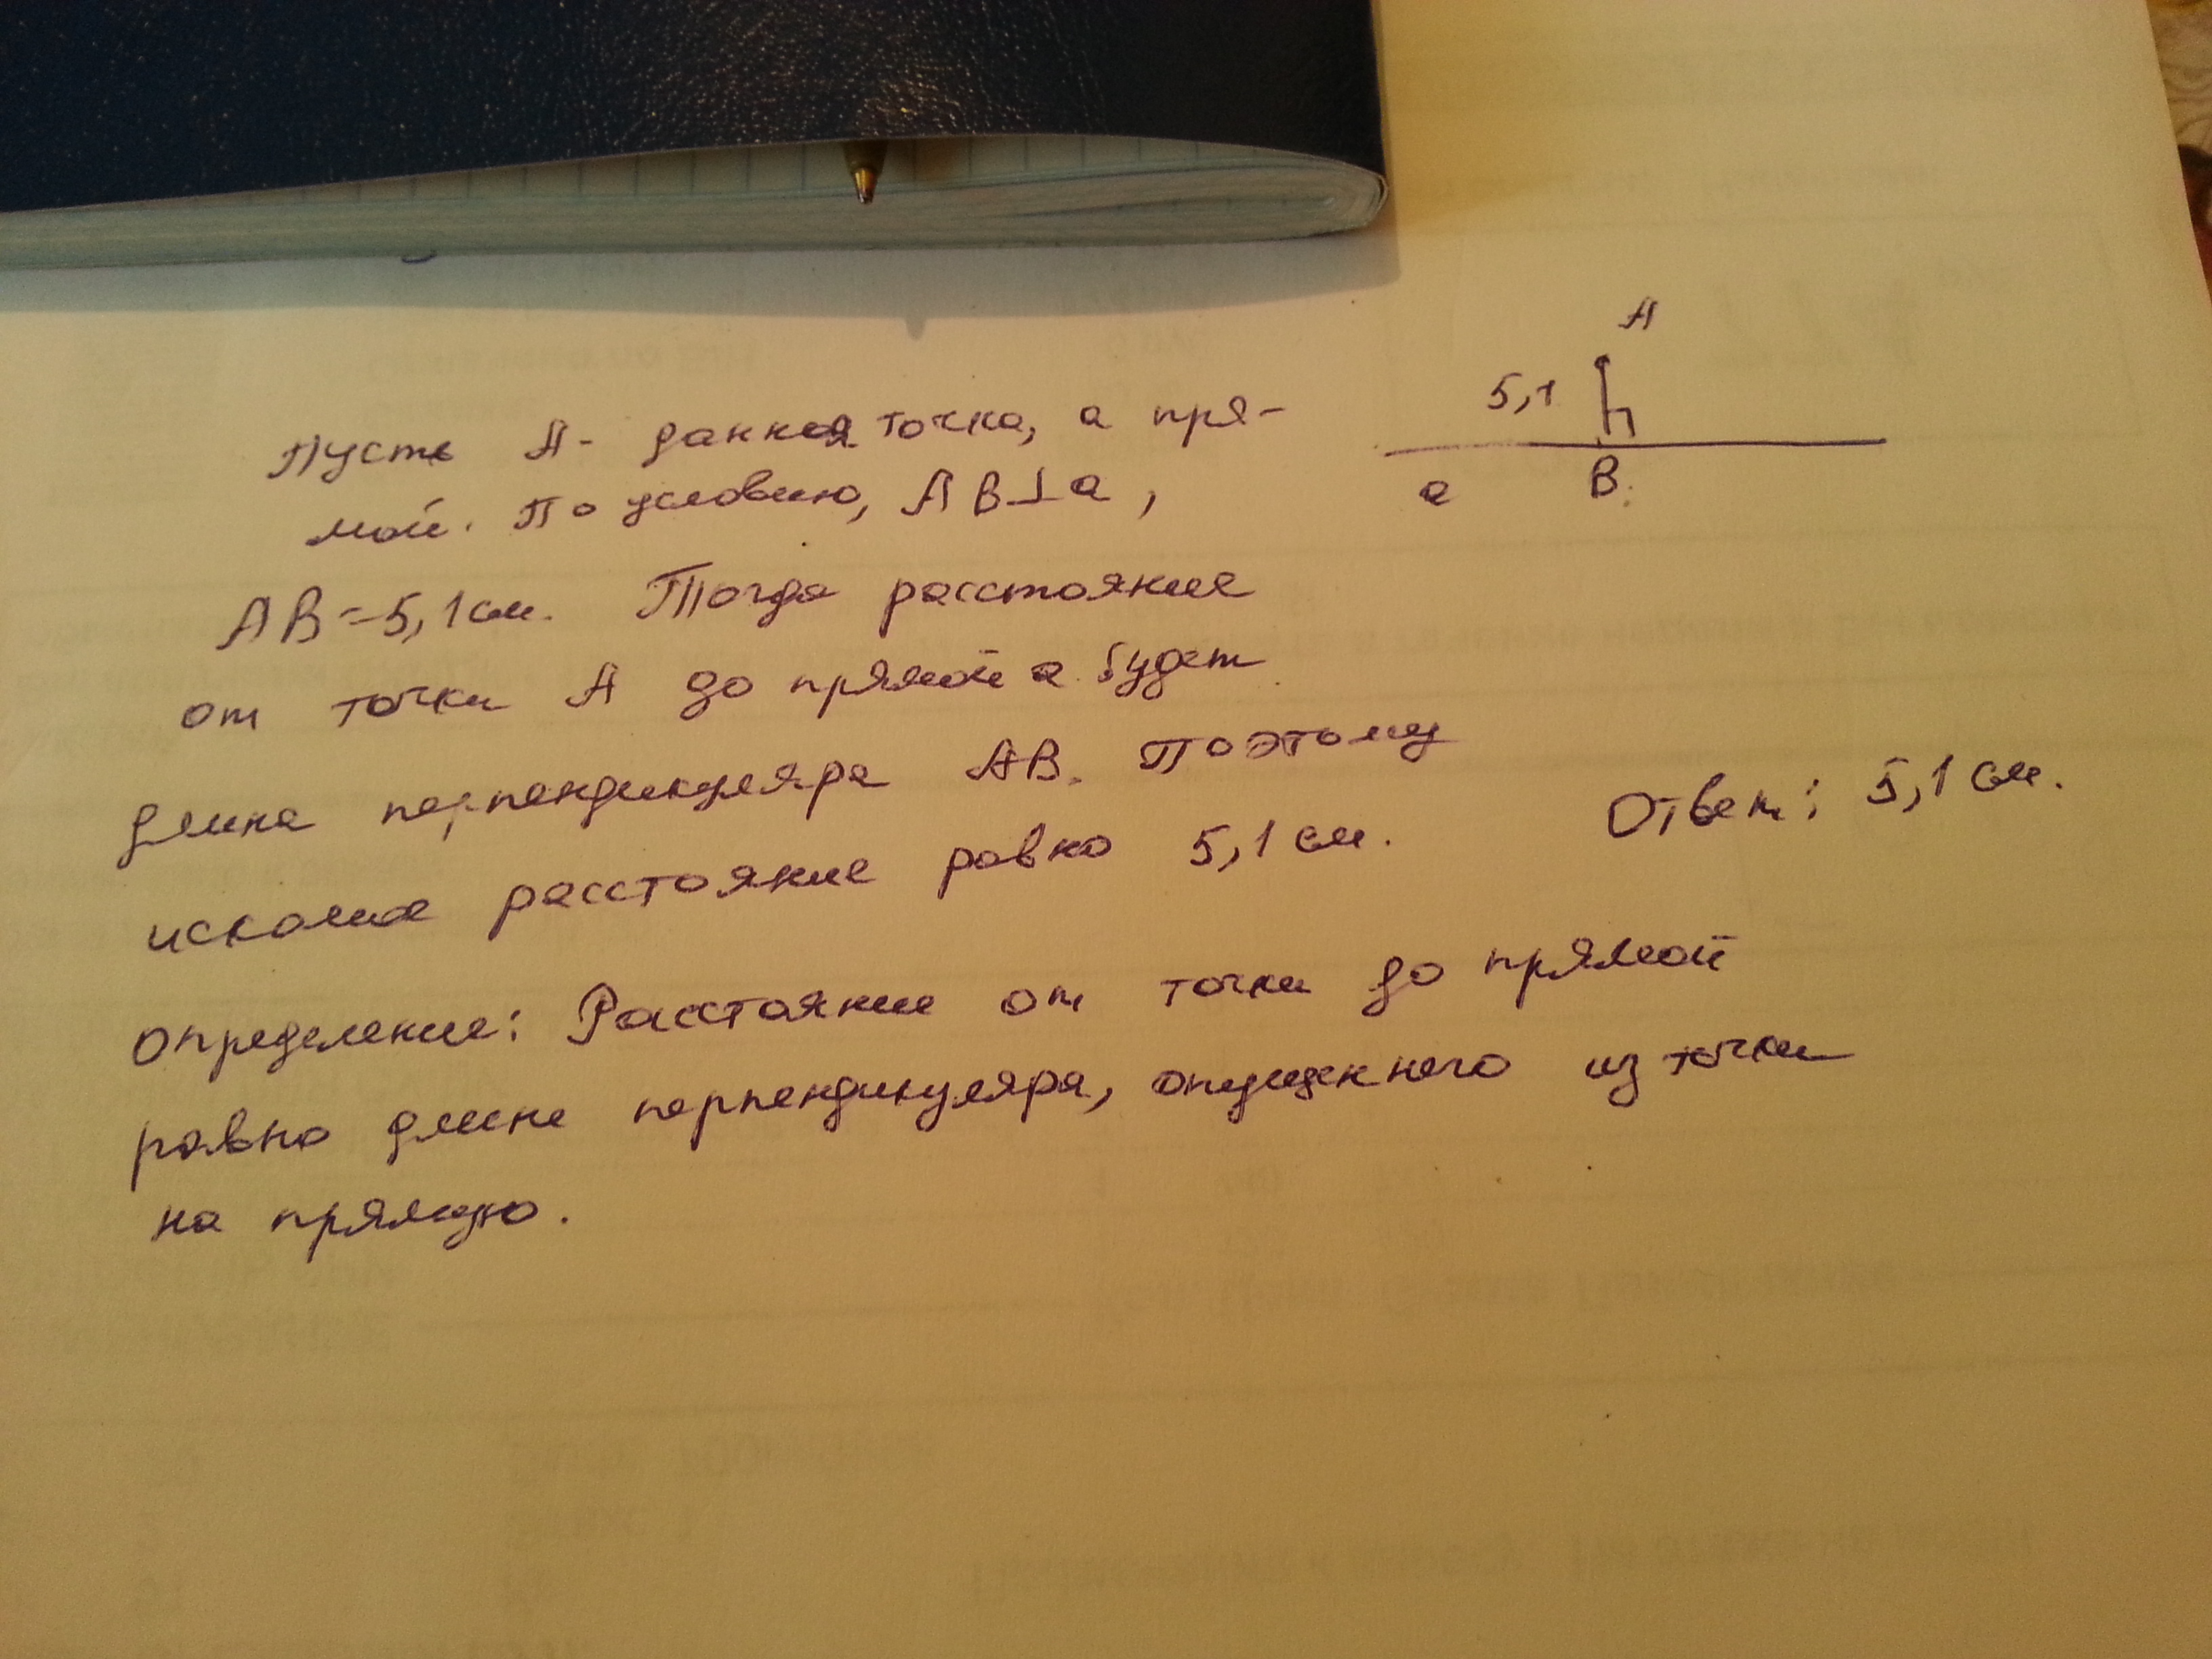 Пусть А- данная точка, а пря-
мой. По условию, АВ⊥а,
АВ=5,1см. Тогда расстояние
от точки А до прямой а будет
длина перпендикуляра АВ. Поэтому
искомое расстояние равно 5,1см.
Ответ: 5,1см.
Определение: Расстояние от точки до прямой
равно длине перпендикуляра, опущенного из точки
на прямую.
А
5,1
а В